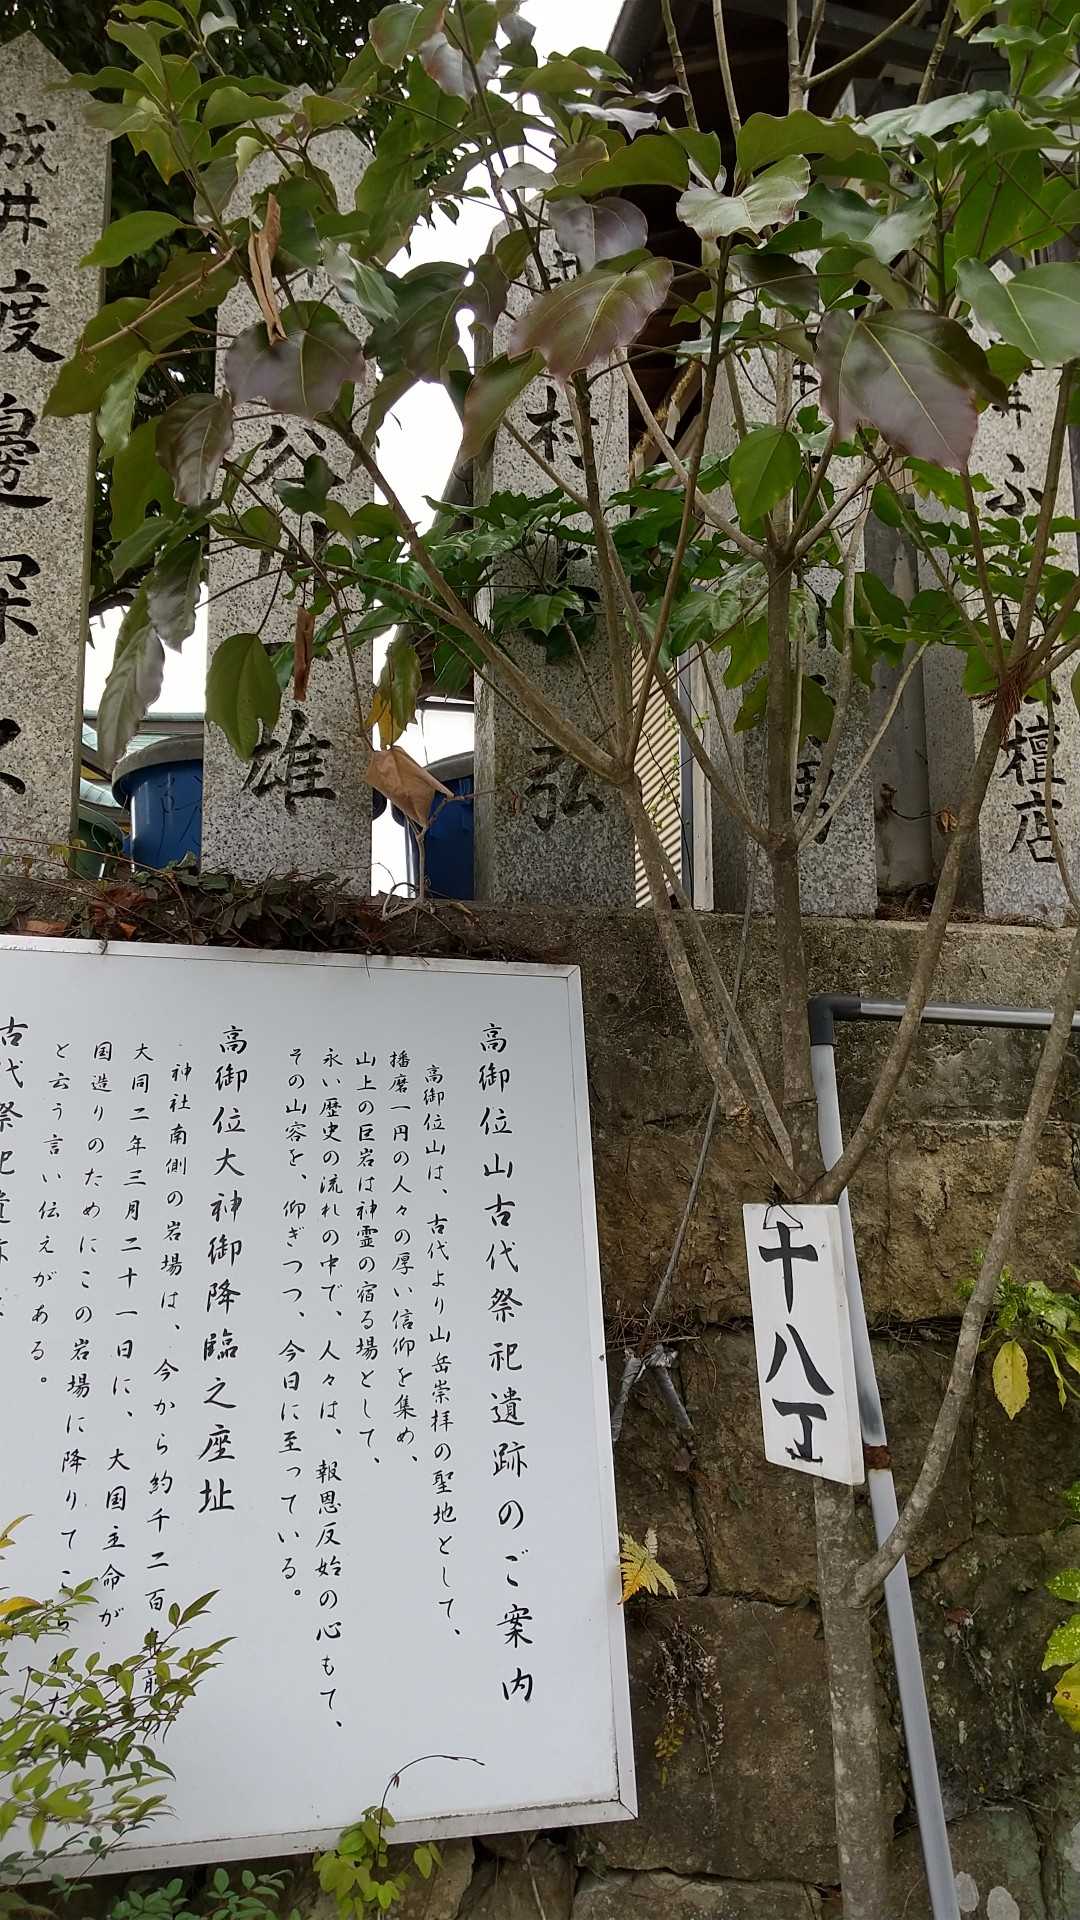 ふ
檀店
村
弘
谷川
雄
成井
渡邉
高御位山古代祭祀遺跡のご案内
高御位山は、古代より山岳崇拝の聖地として、
播磨一円の人々の厚い信仰を集め、
山上の巨岩は神霊の宿る場として、
永い歴史の流れの中で、人々は、報恩反始の心もて、
その山容を、仰ぎつつ、今日に至っている。
高御位大神御降臨之座址
神社南側の岩場は、今から約千二百年前の
大同二年三月二十一日に、大国主命が
国造りのためにこの岩場に降りてこられた
と云う言い伝えがある。
古代祭祀遺跡
十八丁